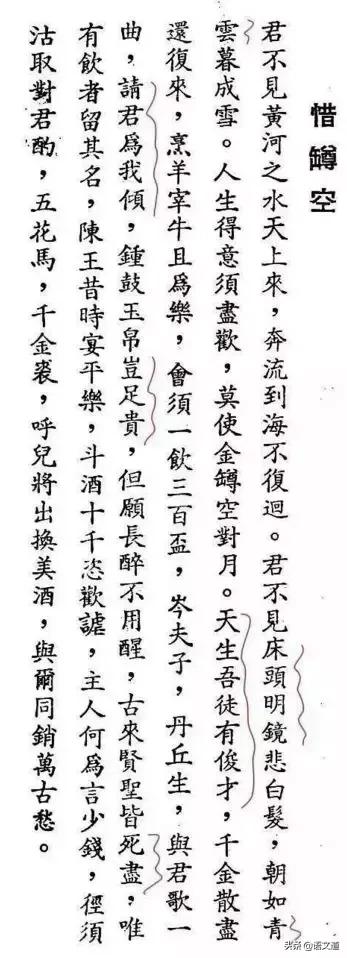 惜罇空
君不見黃河之水天上來，奔流到海不復迴。君不見床頭明鏡悲白髮，朝如青
雲暮成雪。人生得意須盡歡，莫使金罇空對月。天生吾徒有俊才，千金散盡
還復來，烹羊宰牛且爲樂，會須一飲三百盃，岑夫子，丹丘生，與君歌一
曲，請君爲我傾，鍾鼓玉帛豈足貴，但願長醉不用醒，古來賢聖皆死盡，唯
有飲者留其名，陳王昔時宴平樂，斗酒十千恣歡謔，主人何爲言少錢，徑須
沽取對君酌，五花馬，千金裘，呼兒將出換美酒，與爾同銷萬古愁。
头条 @语文道